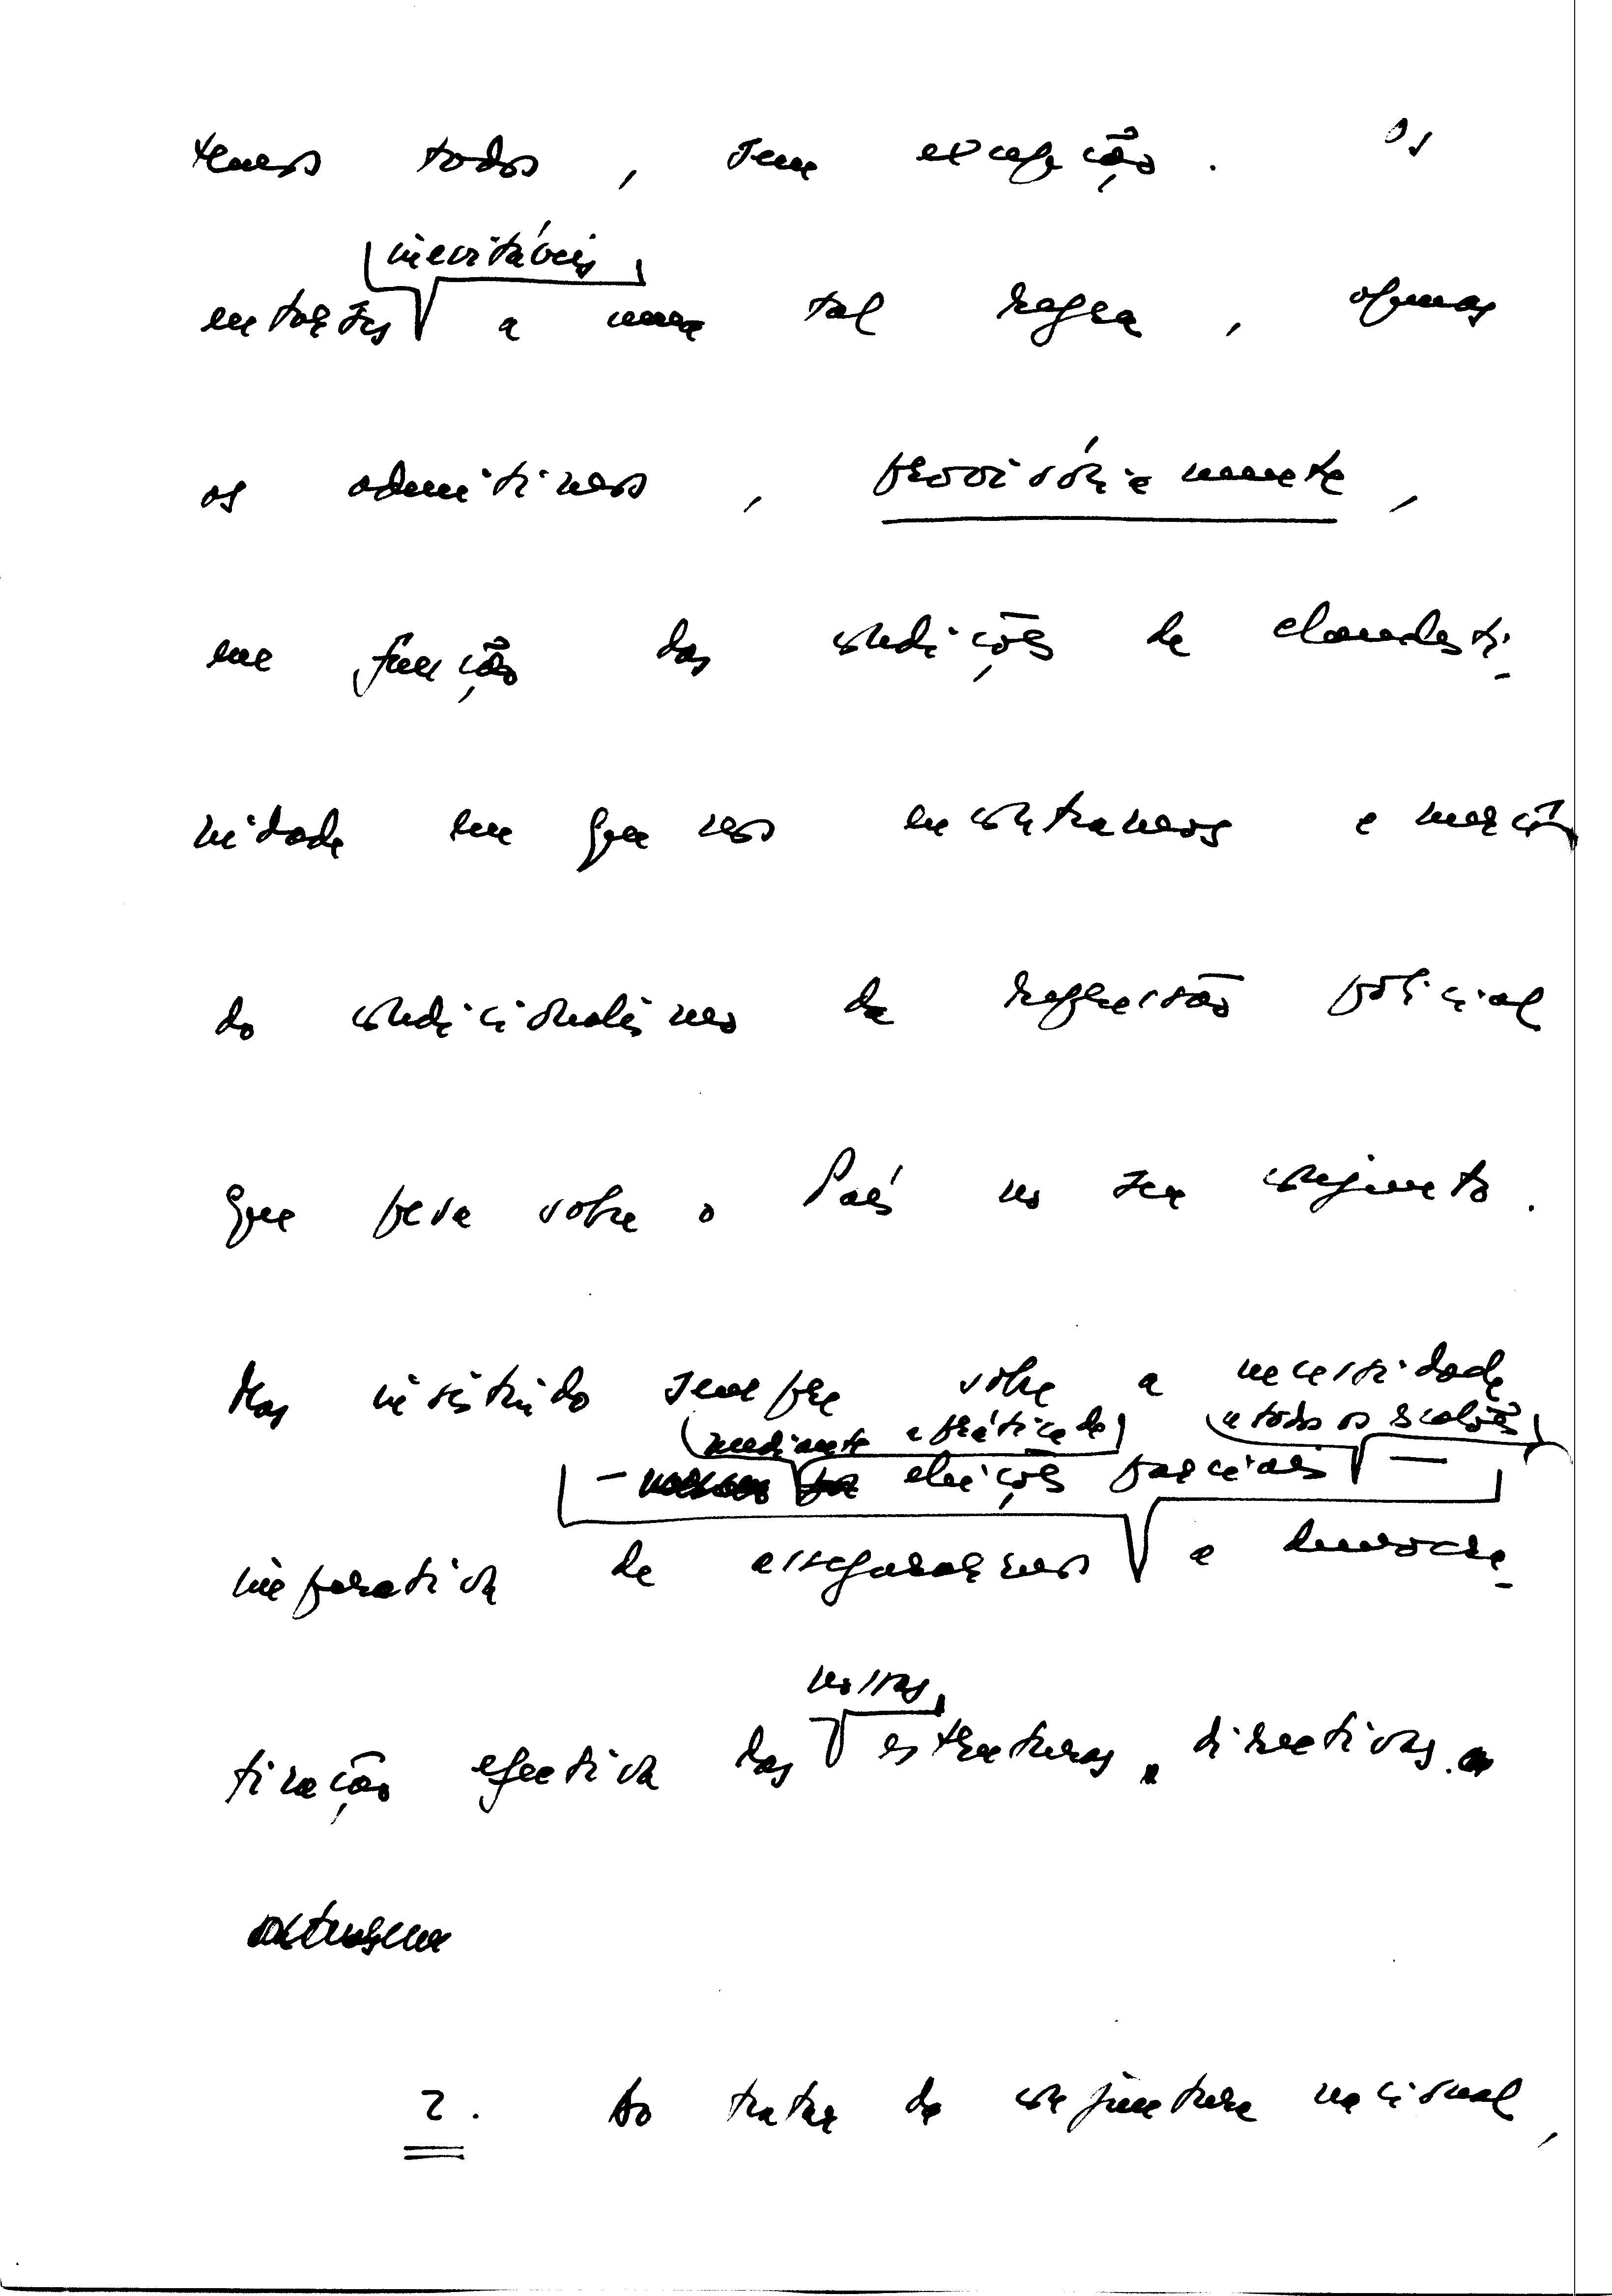 temos todos, sem excepção. Os
inevitáveis
entorses a uma tal regra, apenas
os admitimos, provisòriamente,
em função das condições de clandesti-
nidade em que nos encontramos e mercê
do condicionalismo da repressão policial
que pesa sobre o País no seu conjunto.
Mas insistindo sempre sobre a necessidade
mediante a prática de a todos os escalões
– eleições parciais –
imperativa de assegurarmos a democra-
nossas
tização efectiva das estruturas directivas.
2. Ao tratar da conjuntura nacional,